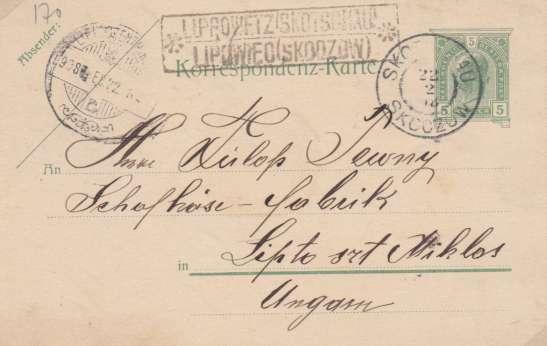 170
Absender:
LIPROWETZ/SKOTSCHAU
LIPOWIEC(SKOCZÓW)
Korrespondenz-Karte
SKOCZÓW
22
2
5
5 5
An Herr Fülöp Jewny
Schafkäse-fabrik
in Lipto szt Miklos
Ungarn